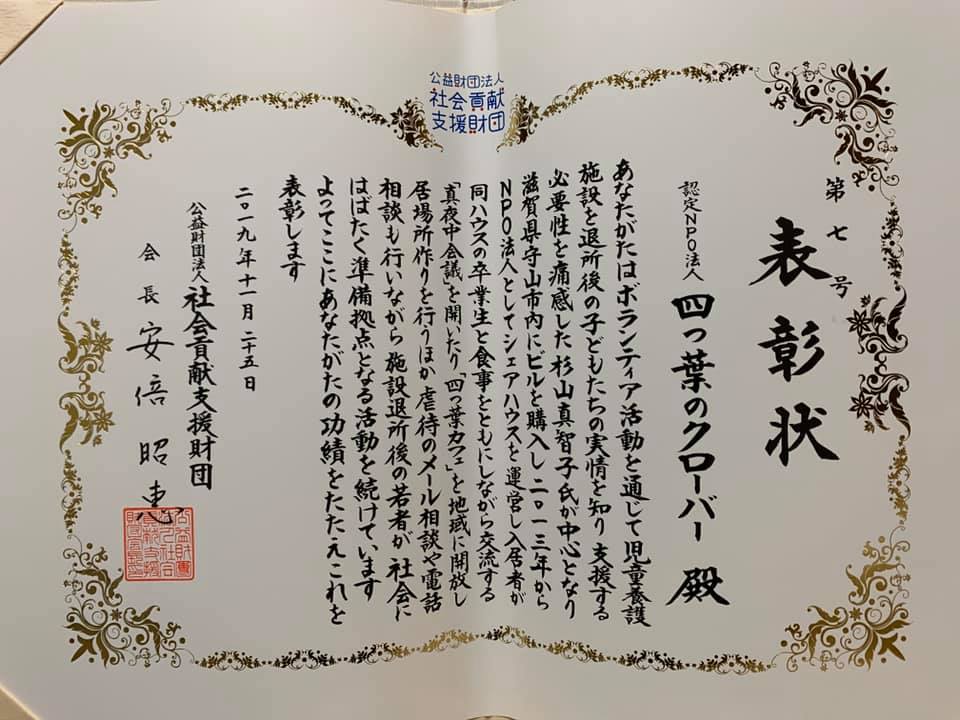 公益財団法人
社会貢献
支援財団
第七号
表彰状
認定NPO法人 四つ葉のクローバー 殿
あなたがたはボランティア活動を通じて児童養護
施設を退所後の子どもたちの実情を知り支援する
必要性を痛感した杉山真智子氏が中心となり
滋賀県守山市内にビルを購入し二〇一三年から
NPO法人としてシェアハウスを運営し入居者が
同ハウスの卒業生と食事をともにしながら交流する
「真夜中会議」を開いたり「四つ葉カフェ」を地域に開放し
居場所作りを行うほか虐待のメール相談や電話
相談も行いながら施設退所後の若者が社会に
はばたく準備拠点となる活動を続けています
よってここにあなたがたの功績をたたえこれを
表彰します
二〇一九年十一月二十五日
公益財団法人 社会貢献支援財団
会長 安倍昭恵